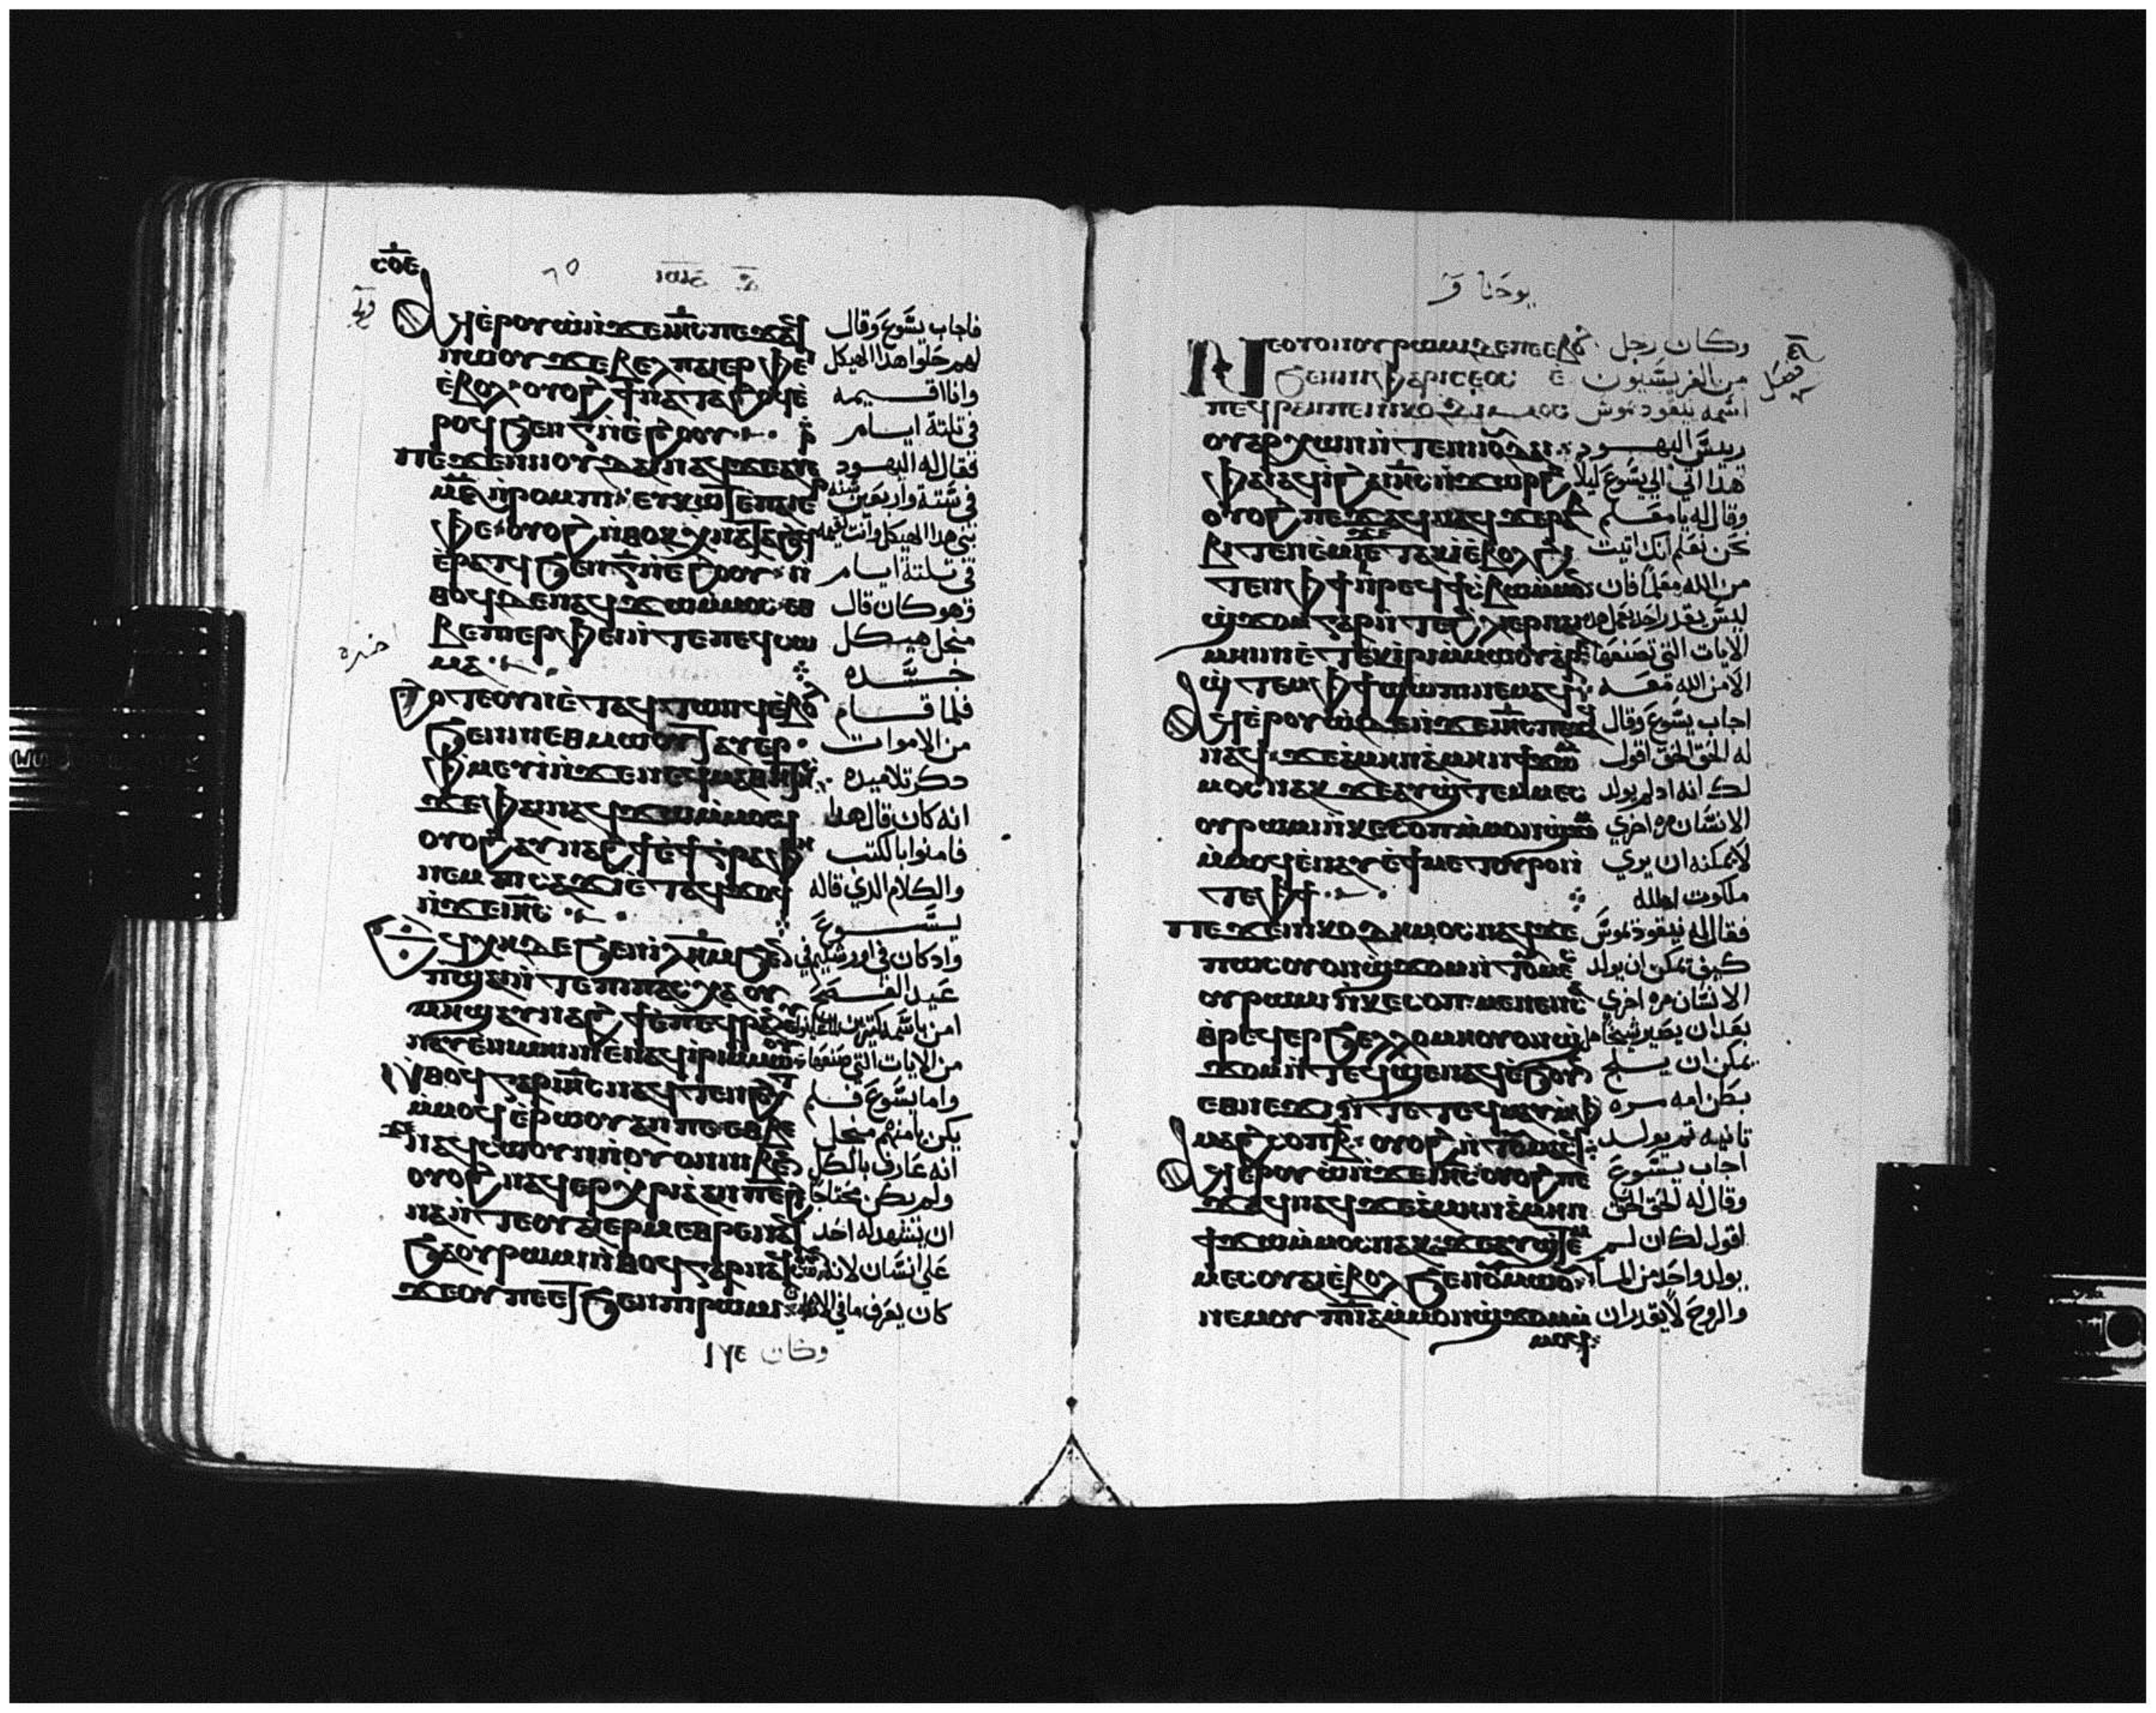 ⲥⲟⲉ
ⲁϥⲉⲣⲟⲩⲱ ⲛϫⲉ ⲓⲏⲥ ⲡⲉϫⲁϥ
ⲛⲱⲟⲩ ϫⲉ ⲃⲉⲗ ⲡⲁⲓⲉⲣⲫⲉⲓ
ⲉⲃⲟⲗ ⲟⲩⲟϩ ϯⲛⲁⲧⲁϩⲟϥ ⲉ
ϧⲉⲛ ⲅ ⲛⲉϩⲟⲟⲩ
ⲡⲉϫⲉ ⲛⲓⲟⲩⲇⲁⲓ ⲛⲁϥ ϫⲉ
ⲛⲣⲟⲙⲡⲓ ⲉⲩⲕⲱϯ ⲙⲡⲁⲓⲉⲣ
ⲫⲉⲓ ⲟⲩⲟϩ ⲛⲑⲟⲕ ⲭⲛⲁⲧⲁϩⲟϥ
ⲉⲣⲁⲧϥ ϧⲉⲛ ⲅ ⲛⲉϩⲟⲟⲩ ⲛ
ⲑⲟϥ ⲇⲉ ⲛⲁϥϫⲱ ⲙⲙⲟⲥ ⲉⲑ
ⲃⲉ ⲡⲓⲉⲣⲫⲉⲓ ⲛⲧⲉ ⲡⲉϥⲥⲱ
ⲙⲁ
ϩⲟⲧⲉ ⲟⲩⲛ ⲉⲧⲁϥⲧⲱⲛϥ ⲉⲃⲟⲗ
ϧⲉⲛ ⲛⲏⲉⲑⲙⲱⲟⲩⲧ ⲁⲩⲉⲣ
ⲫⲙⲉⲩⲓ ⲛϫⲉ ⲛⲉϥⲙⲁⲑⲏⲧⲏⲥ
ϫⲉ ⲫⲁⲓ ⲛⲁϥϫⲱ ⲙⲙⲟϥ
ⲟⲩⲟϩ ⲁⲩⲛⲁϩϯ ⲉϯⲅⲣⲁⲫⲏ
ⲛⲉⲙ ⲡⲓⲥⲁϫⲓ ⲉⲧⲁϥϫⲟϥ
ⲛϫⲉ ⲓⲏⲥ
ϩⲟⲥ ⲉϥⲭⲏ ⲇⲉ ϧⲉⲛ ⲓⲗⲏⲙ ϧⲉⲛ
ⲡϣⲁⲓ ⲛⲧⲉ ⲡⲓⲡⲁⲥⲭⲁ ⲟⲩ
ⲙⲏϣ ⲁⲩⲛⲁϩϯ ⲉⲡⲉϥⲣⲁⲛ
ⲛⲁⲩ ⲉⲛⲓⲙⲏⲓⲛⲓ ⲉⲛⲁϥⲓⲣⲓ ⲙⲙⲱⲟⲩ
ⲛⲑⲟϥ ⲇⲉ ⲓⲏⲥ ⲛⲁϥⲧⲉⲛϩⲟⲩⲧ
ⲙⲙⲟϥ ⲉⲣⲱⲟⲩ ⲁⲛ ⲡⲉ ⲉⲑⲃⲉ
ϫⲉ ⲛⲁϥⲥⲱⲟⲩⲛ ⲛⲟⲩⲟⲛ ⲛⲓⲃⲉⲛ
ⲟⲩⲟϩ ⲛⲁϥⲉⲣⲭⲣⲓⲁ ⲁⲛ ⲡⲉ ϩⲓ
ⲛⲁ ⲛⲧⲉ ⲟⲩⲁⲓ ⲉⲣⲙⲉⲑⲣⲉ ⲛⲁϥ
ϧⲁ ⲟⲩⲣⲱⲙⲓ ⲛⲑⲟϥ ⲅⲁⲣ ⲛⲁϥ
ϫⲉ ⲟⲩ ⲡⲉⲧ ϧⲉⲛ ⲡⲓⲣⲱⲙⲓ
فاجاب يسوع وقال
لهم حلوا هذا الهيكل
وانا اقيمه
في تلتة ايام
فقال له اليهود
في ستة واربعين سنه
بني هذا الهيكل وانت تقيمه
في تلتة ايام
وهو كان قال
من اجل هيكل
جسده
فلما قام
من الاموات
دكر تلاميده
انه كان قال هدا
فامنوا بالكتب
والكلام الدي قاله
يسوع
واد كان في اورشليم في
عيد الفسح
من الايات التي صنعها
واما يسوع فلم
يكن يامنهم من اجل
انه عارف بالكل
ولم يكن محتاجا
ان يشهد له احد
علي انسان لانه
كان يعرف ما في الانسان
وكان
يوحنا
فصل
ⲛⲉ ⲟⲩⲟⲛ ⲟⲩⲣⲱⲙⲓ ⲇⲉ ⲡⲉ ⲉⲃⲟⲗ
ϧⲉⲛ ⲛⲓⲫⲁⲣⲓⲥⲉⲟⲥ ⲉ
ⲡⲉϥⲣⲁⲛ ⲡⲉ ⲛⲓⲕⲟⲇⲏⲙⲟⲥ
ⲟⲩⲁⲣⲭⲱⲛ ⲛⲧⲉ ⲛⲓⲟⲩⲇⲁⲓ
ⲫⲁⲓ ⲁϥⲓ ϩⲁ ⲓⲏⲥ ⲛϫⲱⲣϩ
ⲟⲩⲟϩ ⲡⲉϫⲁϥ ⲛⲁϥ ϫⲉ ⲣⲁⲃ
ⲃⲓ ⲧⲉⲛⲉⲙⲓ ϫⲉ ⲉⲧⲁⲕⲓ ⲉⲃⲟⲗ ϩⲓ
ⲧⲉⲛ ⲫϯ ⲛⲣⲉϥϯⲥⲃⲱ ⲙⲙⲟⲛ
ϣϫⲟⲙ ⲅⲁⲣ ⲛⲧⲉ ϩⲗⲓ ⲉⲣ ⲛⲁⲓ
ⲙⲏⲓⲛⲓ ⲉⲧⲉⲕⲓⲣⲓ ⲙⲙⲱⲟⲩ ⲁⲣⲉ
ϣⲧⲉⲙ ⲫϯ ϣⲱⲡⲓ ⲛⲉⲙⲁϥ
ⲁϥⲉⲣⲟⲩⲱ ⲛϫⲉ ⲓⲏⲥ ⲡⲉϫⲁϥ
ⲛⲁϥ ϫⲉ ⲁⲙⲏⲛ ⲁⲙⲏⲛ ϯϫⲱ ⲙ
ⲙⲟⲥ ⲛⲁⲕ ϫⲉ ⲁⲩϣⲧⲉⲙⲙⲉⲥ
ⲟⲩⲣⲱⲙⲓ ⲛⲕⲉⲥⲟⲡ ⲙⲙⲟⲛ ϣϫⲟⲙ
ⲙⲙⲟϥ ⲉⲛⲁⲩ ⲉϯⲙⲉⲧⲟⲩⲣⲟ ⲛ
ⲧⲉ ⲫϯ
ⲡⲉϫⲉ ⲛⲓⲕⲟⲇⲏⲙⲟⲥ ⲛⲁϥ ϫⲉ
ⲡⲱⲥ ⲟⲩⲟⲛ ϣϫⲟⲙ ⲛⲧⲟⲩⲙⲉⲥ
ⲟⲩⲣⲱⲙⲓ ⲛⲕⲉⲥⲟⲡ ⲙⲉⲛⲉⲛⲥⲁ
ⲑⲣⲉϥⲉⲣϧⲉⲗⲗⲟ ⲙⲏ ⲟⲩⲟⲛ ϣ
ϫⲟⲙ ⲛⲧⲉϥϣⲉⲛⲁϥ ⲉϧⲟⲩⲛ
ⲉⲑⲛⲉϫⲓ ⲛⲧⲉ ⲧⲉϥⲙⲁⲩ ⲙⲫ
ⲙⲁϩⲥⲟⲡ ⲃ ⲟⲩⲟϩ ⲛⲧⲟⲩⲙⲁⲥϥ
ⲁϥⲉⲣⲟⲩⲱ ⲛϫⲉ ⲓⲏⲥ ⲟⲩⲟϩ ⲡⲉ
ϫⲁϥ ⲛⲁϥ ϫⲉ ⲁⲙⲏⲛ ⲁⲙⲏⲛ
ϯϫⲱ ⲙⲙⲟⲥ ⲛⲁⲕ ϫⲉ ⲁⲩϣⲧⲉⲙ
ⲙⲉⲥ ⲟⲩⲁⲓ ⲉⲃⲟⲗ ϧⲉⲛ ⲟⲩⲙⲱⲟⲩ
ⲛⲉⲙ ⲟⲩⲡⲛⲁ ⲙⲙⲟⲛ ϣϫⲟⲙ ⲙ
ⲙⲟϥ
وكان رجل
من الفريسيون
اسمه نيقوديموس
ريس اليهود
هدا اتي الي يسوع ليلا
وقال له يا معلم
نحن نعلم انك اتيت
من الله معلما فان
ليس يقدر احد يعمل هده
الايات التي تصنعها
الا من الله معه
اجاب يسوع وقال
له الحق الحق اقول
لك انه اد لم يولد
الانسان مره اخري
لا يمكنه ان يري
ملكوت الله
فقال له نيقوديموس
كيف يمكن ان يولد
الانسان مره اخري
بعد ان يصير شيخا هل
يمكن ان يلج
بطن امه مره
تانيه تم يولد
اجاب يسوع
وقال له الحق الحق
اقول لك ان لم
يولد واحد من الما
والروح لا يقدر ان